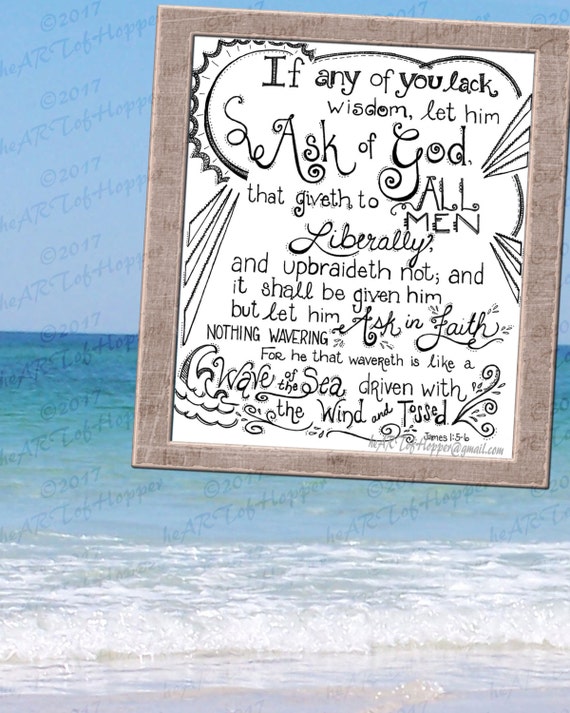 If any of you lack
wisdom, let him
Ask of God,
that giveth to ALL
MEN
Liberally,
and upbraideth not; and
it shall be given him
but let him Ask in Faith
NOTHING WAVERING
For he that wavereth is like a
Wave of the Sea driven with
the Wind and Tossed.
James 1:5-6
heARTofHopper@gmail.com
©2017
heARTofHopper